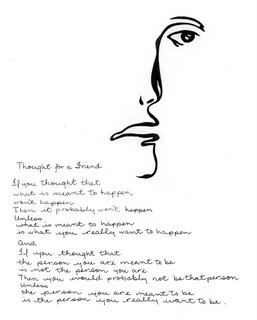 Thought for a Friend
If you thought that
what is meant to happen,
won't happen
Then it probably won't happen
Unless
what is meant to happen
is what you really want to happen
And
If you thought that
the person you are meant to be
is not the person you are
Then you would probably not be that person
Unless
the person you are meant to be
is the person you really want to be.